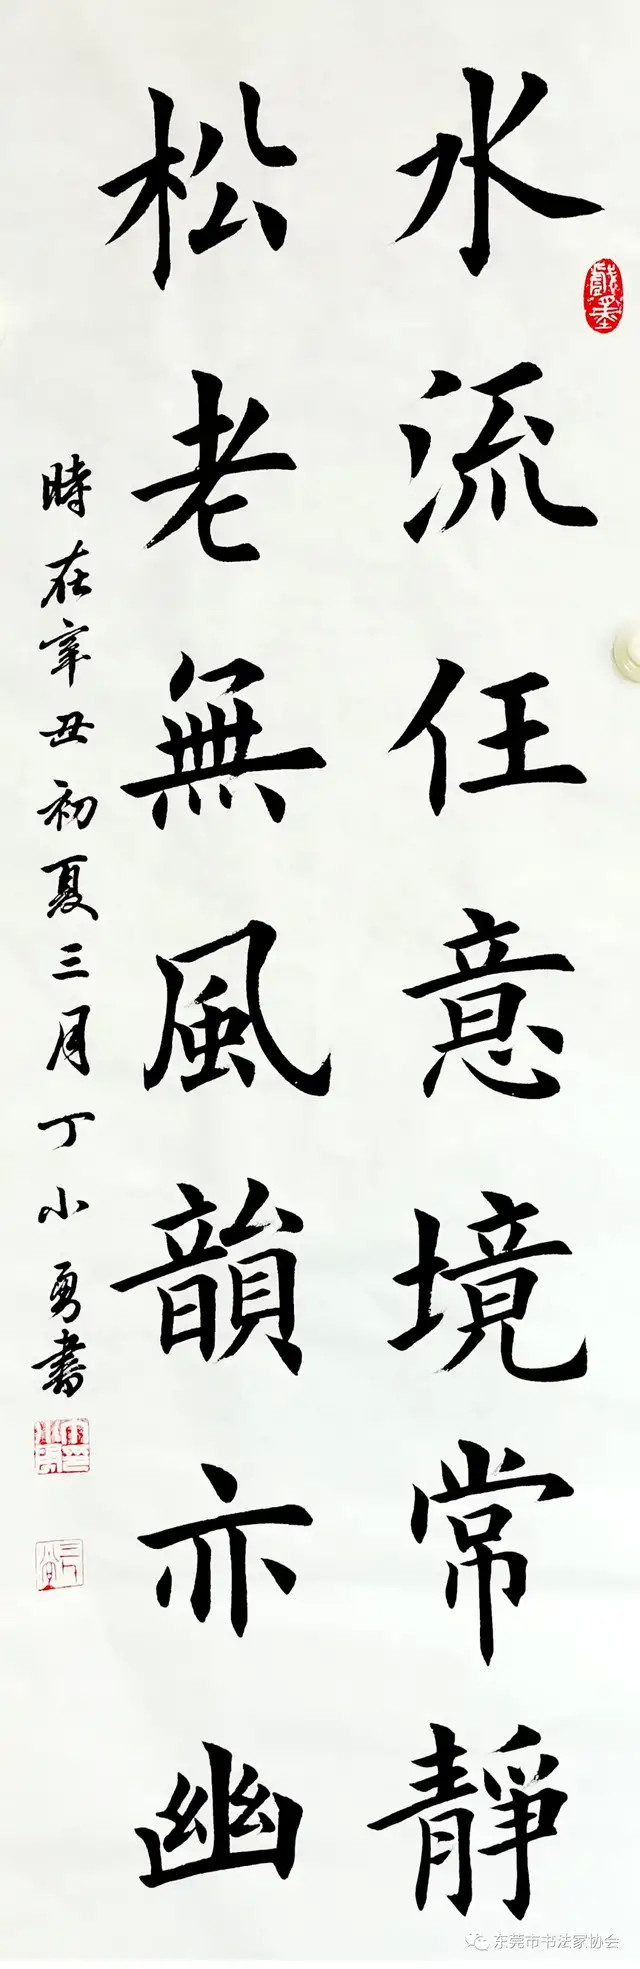 水流任意境常靜
松老無風韻亦幽
時在辛丑初夏三月丁小勇書
戲墨
东莞市书法家协会